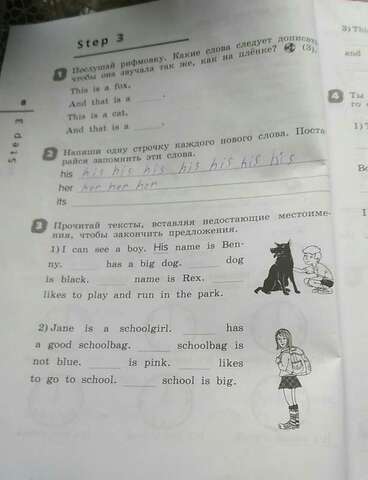 Step 3
1 Послушай рифмовку. Какие слова следует дописать,
чтобы она звучала так же, как на плёнке? (3).
This is a fox.
And that is a ______.
This is a cat.
And that is a ______.
8
Step 3
2 Напиши одну строчку каждого нового слова. Поста
райся запомнить эти слова.
his his his his his his his his
her her her her
its
3 Прочитай тексты, вставляя недостающие местоиме-
ния, чтобы закончить предложения.
1) I can see a boy. His name is Ben-
ny. ______ has a big dog. ______ dog
is black. ______ name is Rex. ______
likes to play and run in the park.
2) Jane is a schoolgirl. ______ has
a good schoolbag. ______ schoolbag is
not blue. ______ is pink. ______ likes
to go to school. ______ school is big.
3) This
and
4 Ты
1)